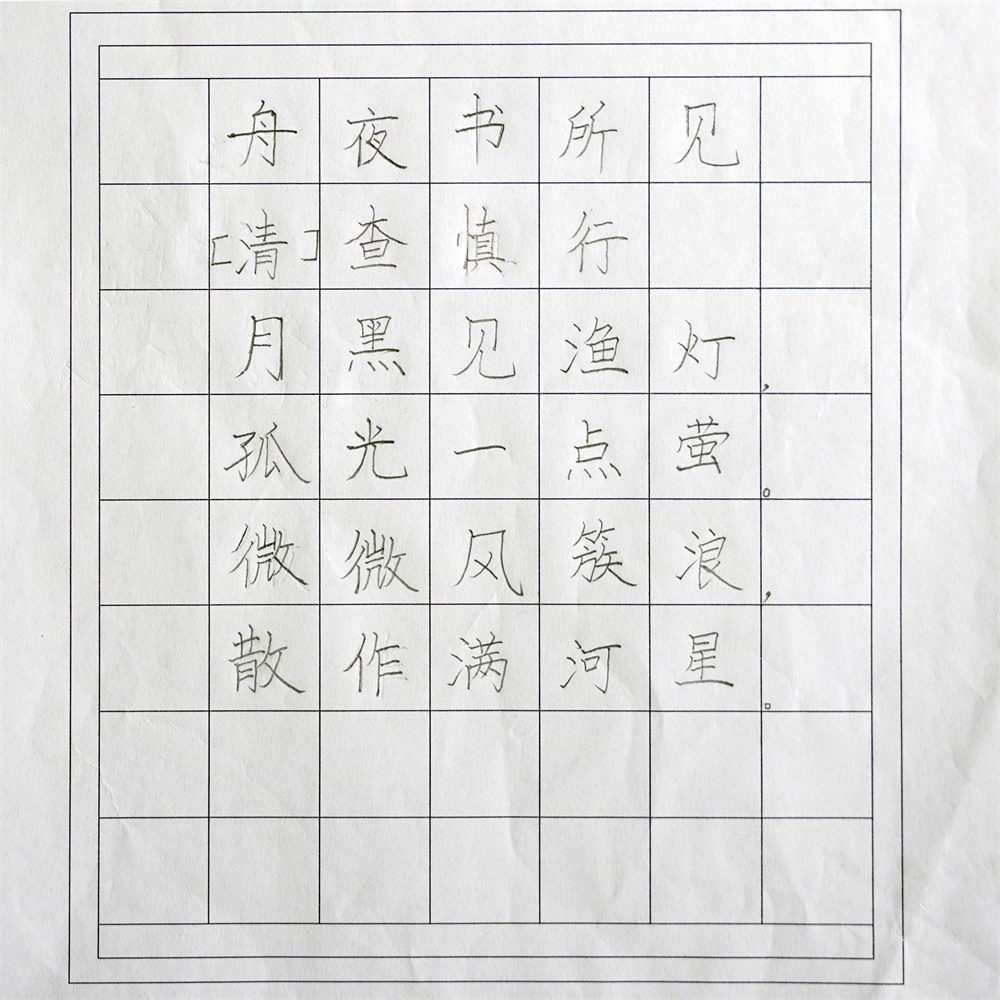 舟夜书所见
[清]查慎行
月黑见渔灯，
孤光一点萤。
微微风簇浪，
散作满河星。